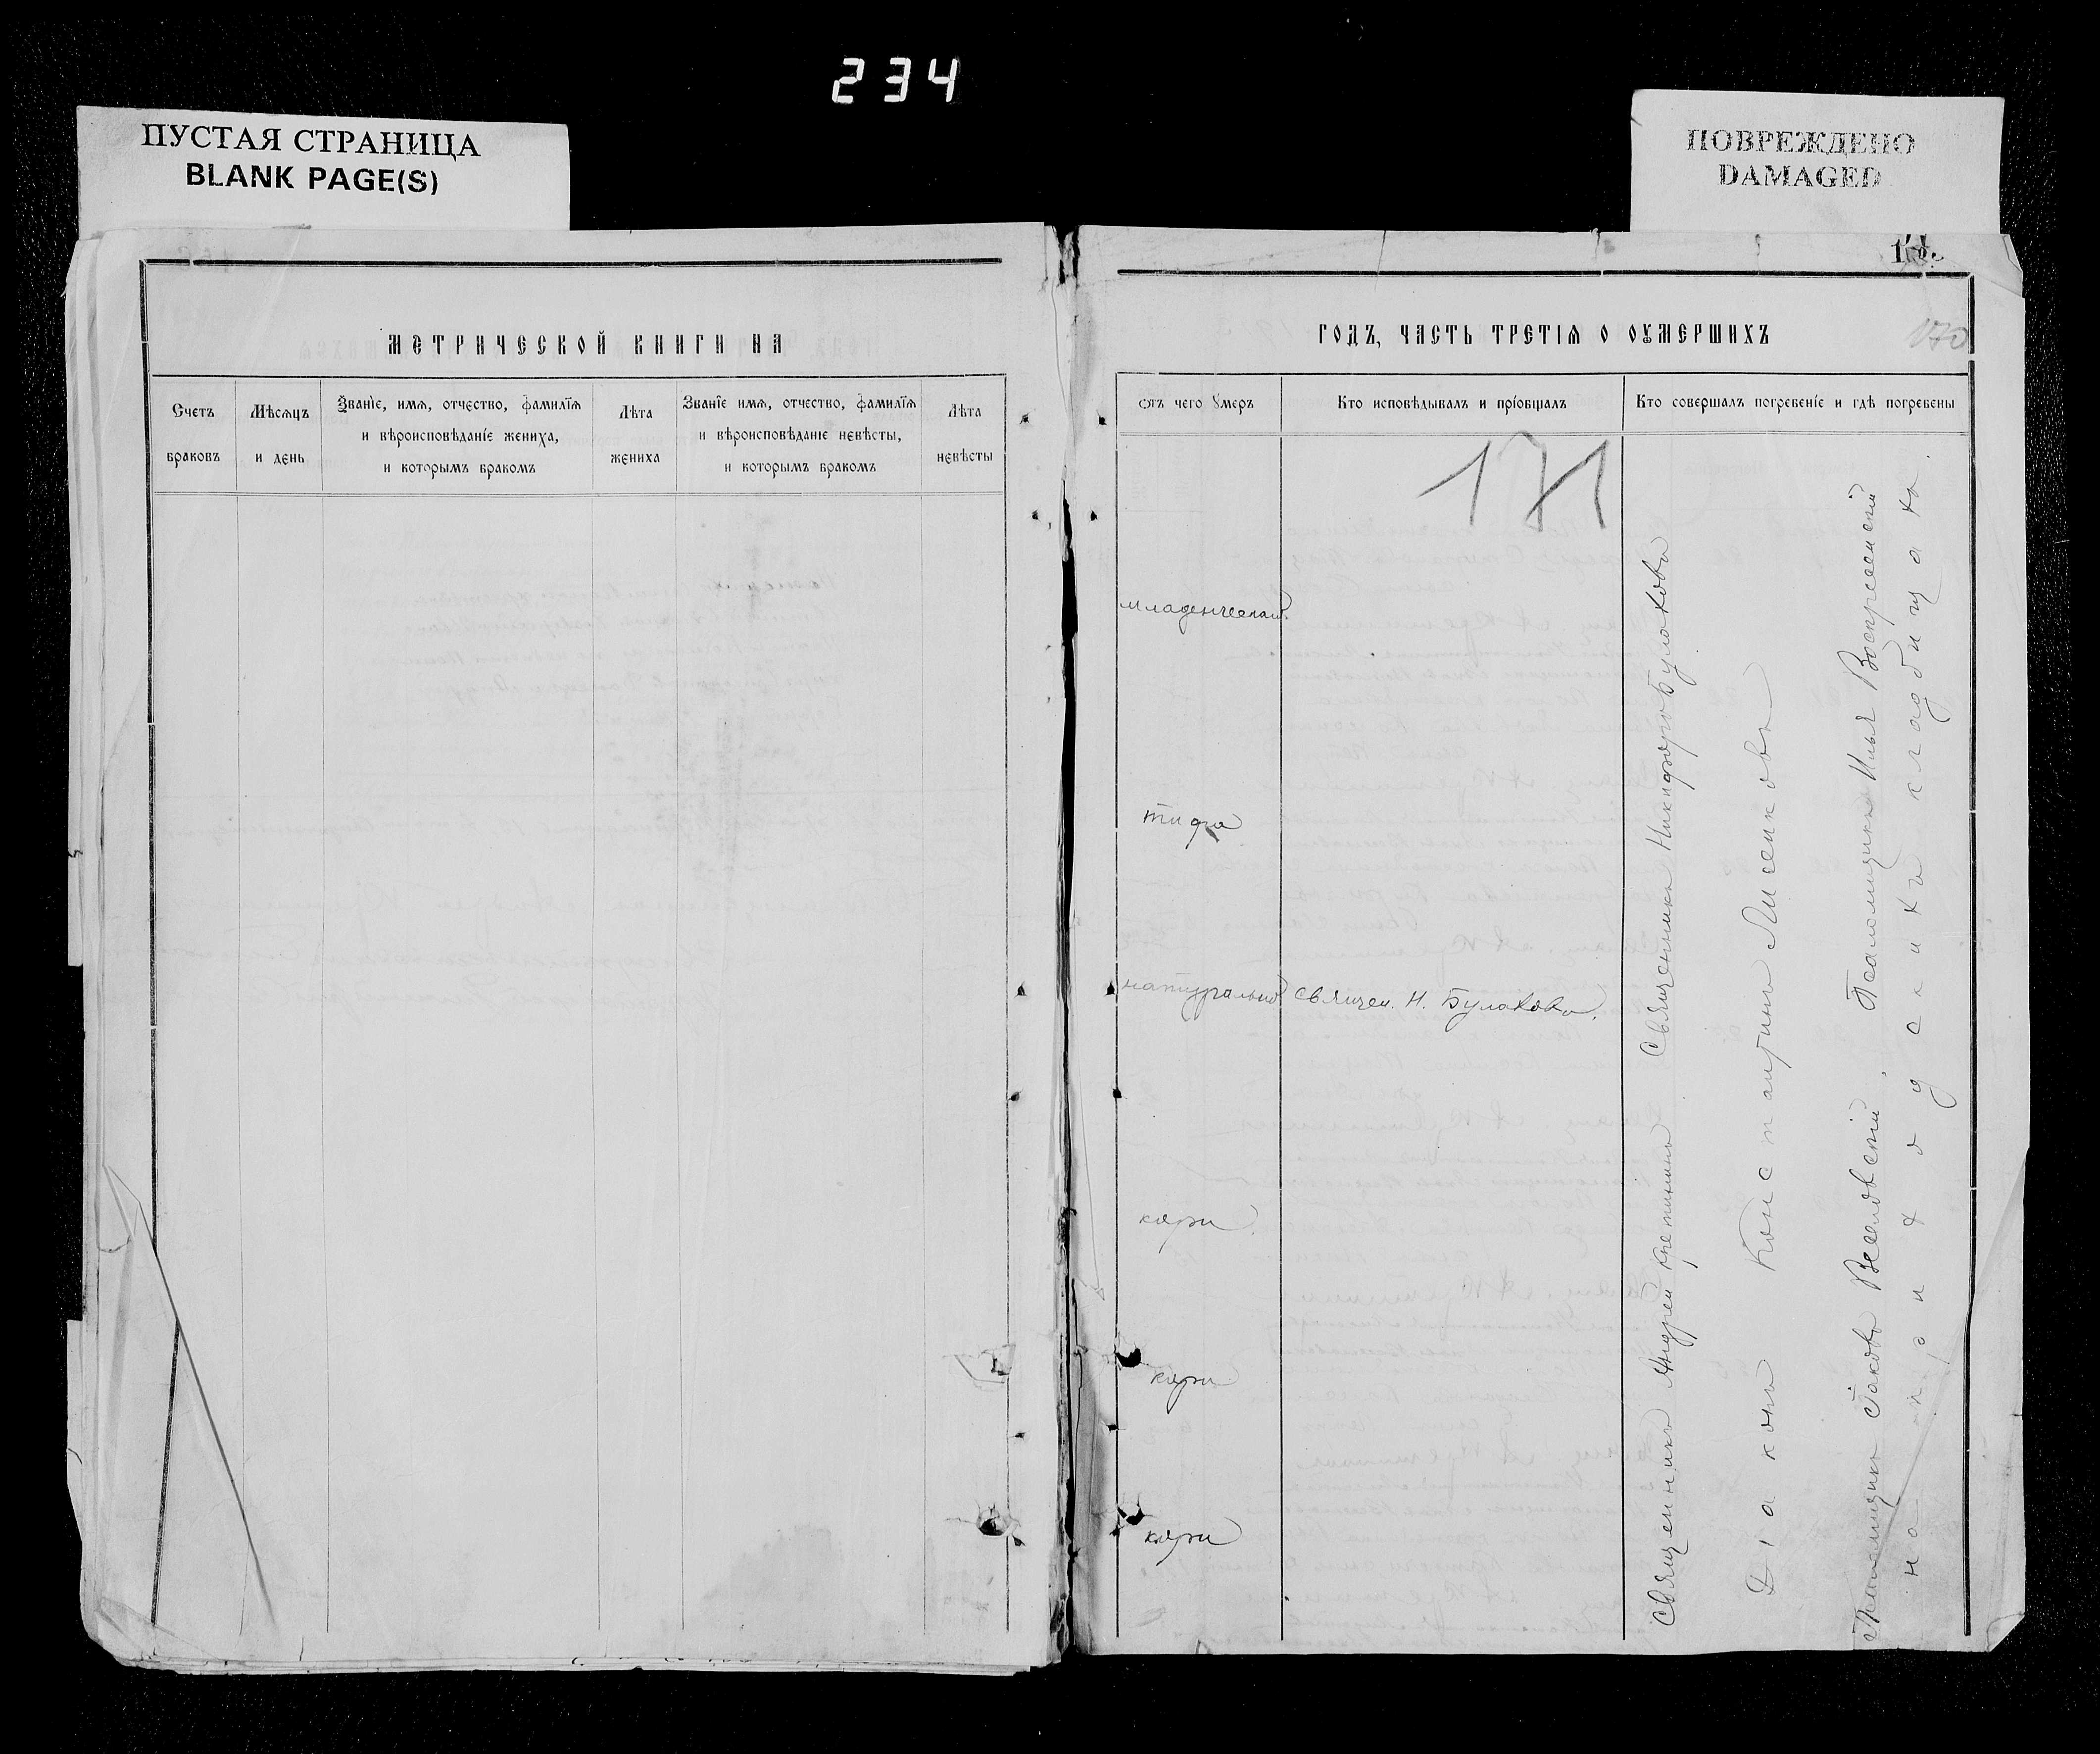 234
ПУСТАЯ СТРАНИЦА
BLANK PAGE(S)
ПОВРЕЖДЕНО
DAMAGED
МЕТРИЧЕСКОЙ КНИГИ НА
Счетъ
браковъ
Мѣсяцъ
и день
Званїе, имя, отчество, фамилїя
и вѣроисповѣданїе жениха,
и которымъ бракомъ
Лѣта
жениха
Званїе имя, отчество, фамилїя
и вѣроисповѣданїе невѣсты,
и которымъ бракомъ
Лѣта
невѣсты
170
ГОДЪ, ЧАСТЬ ТРЕТІЯ О ОУМЕРШИХЪ
отъ чего умеръ
Кто исповѣдывалъ и прїобщалъ
Кто совершалъ погребенїе и гдѣ погребены
171
младенческой
тифа
натурально
Священ. Н. Булаковъ.
кори
кори
кори
Священникъ Андрей Кретининъ Священникъ Никифоръ Булаковъ
Діаконъ Константинъ Лисенковъ
Псаломщикъ Іаковъ Веселовскій. Псаломщикъ Илья Воскресенскій
на приходскихъ кладбищахъ.